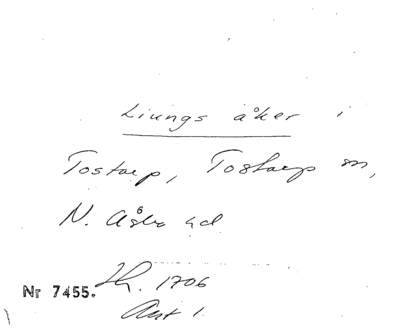 Liungs åker i
Tostarp, Tostarp sn,
N. Åsbo hd
Jb. 1706
Nr 7455.
Ant 1.